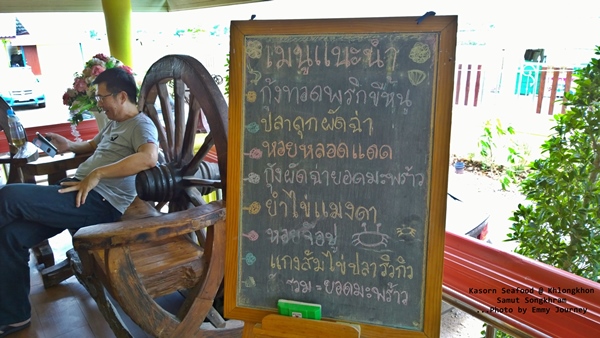 เมนูแนะนำ
กุ้งทอดพริกขี้หนู
ปลาดุกผัดฉ่า
หอยหลอดแดด
กุ้งผัดฉ่ายอดมะพร้าว
ยำไข่แมงดา
หอยจ๊อปู
แกงส้มไข่ปลาริวกิว
ยอดมะพร้าว
Kasorn Seafood @ Khlongkhon
Samut Songkhram
...Photo by Emmy Journey